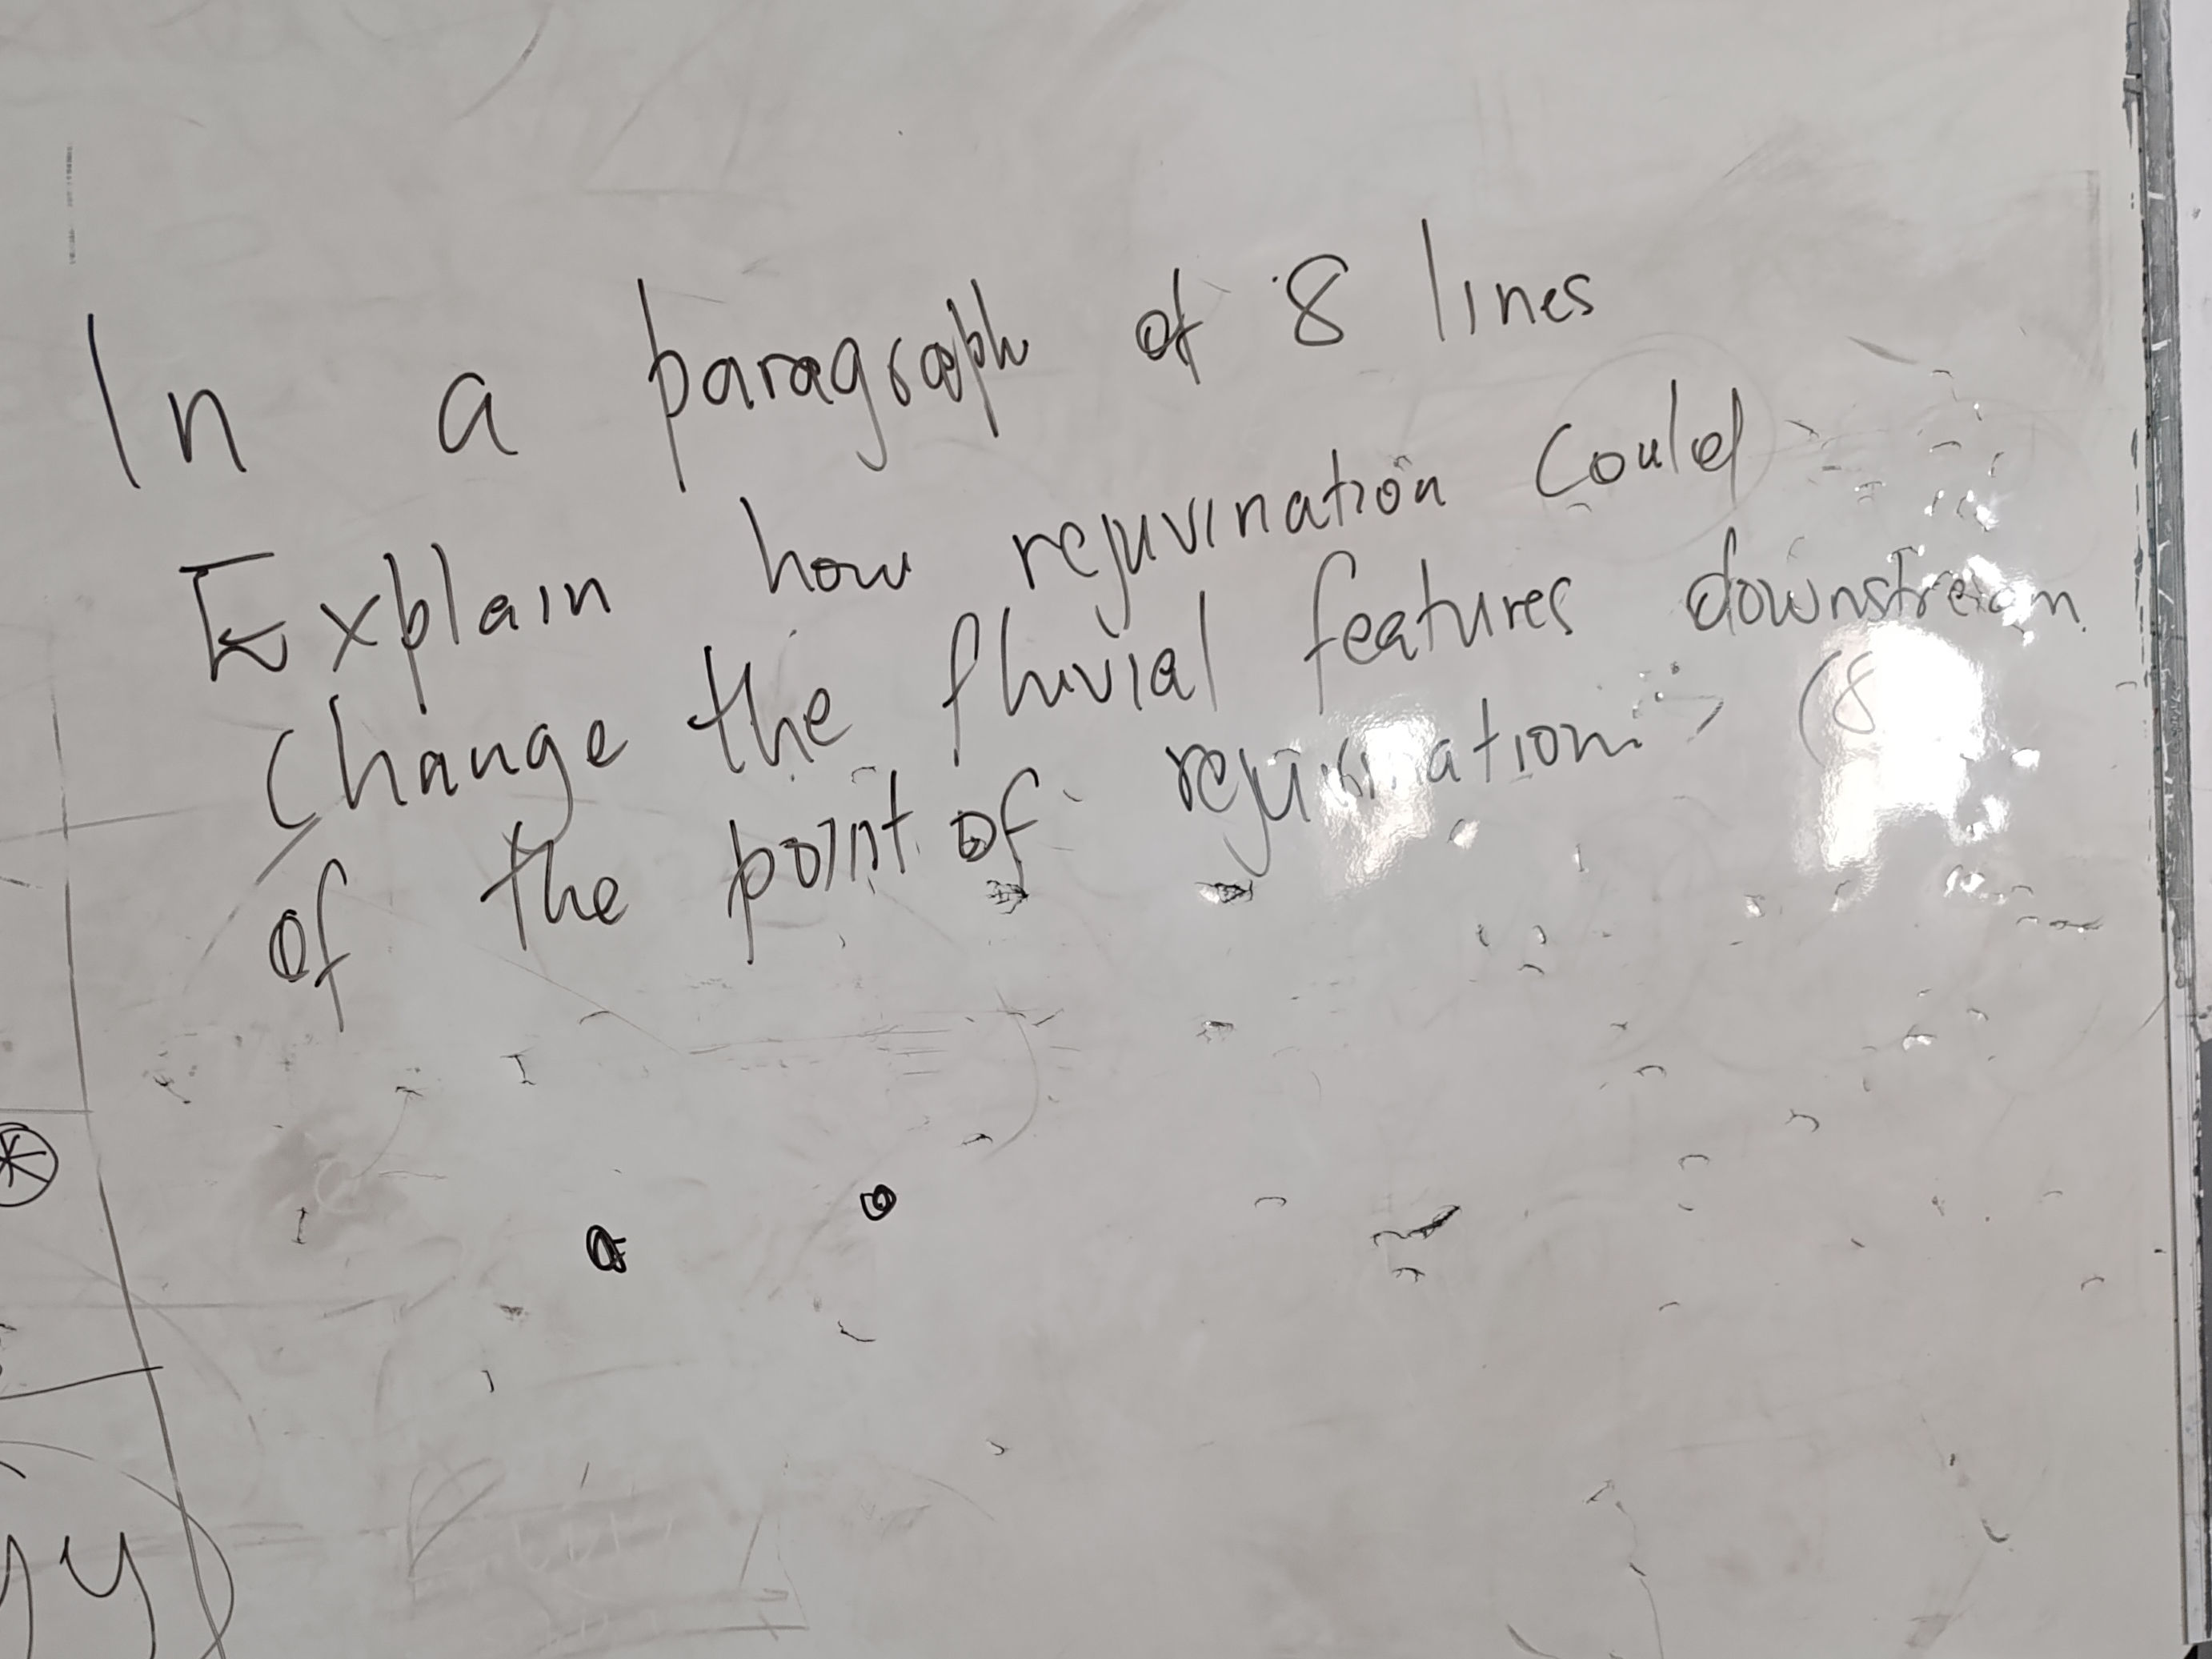 In a paragraph of 8 lines
Explain how rejuvination could
change the fluvial features downstream
of the point of rejuvination (8
yy